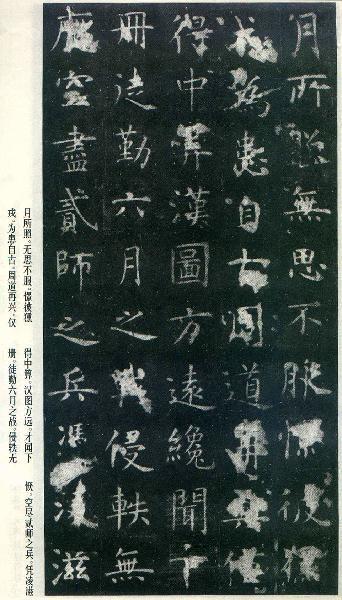 月所照無思不服憬彼獯
戎為患自古周道再興僅
得中筭漢圖方遠纔聞下
冊徒勤六月之戰侵軼無
厭空盡貳師之兵馮凌滋
月所照。无思不服。憬彼獯
戎，为患自古。周道再兴，仅
得中算。汉图方远，才闻下
册。徒勤六月之战，侵轶无
空尽贰师之兵，凭凌滋